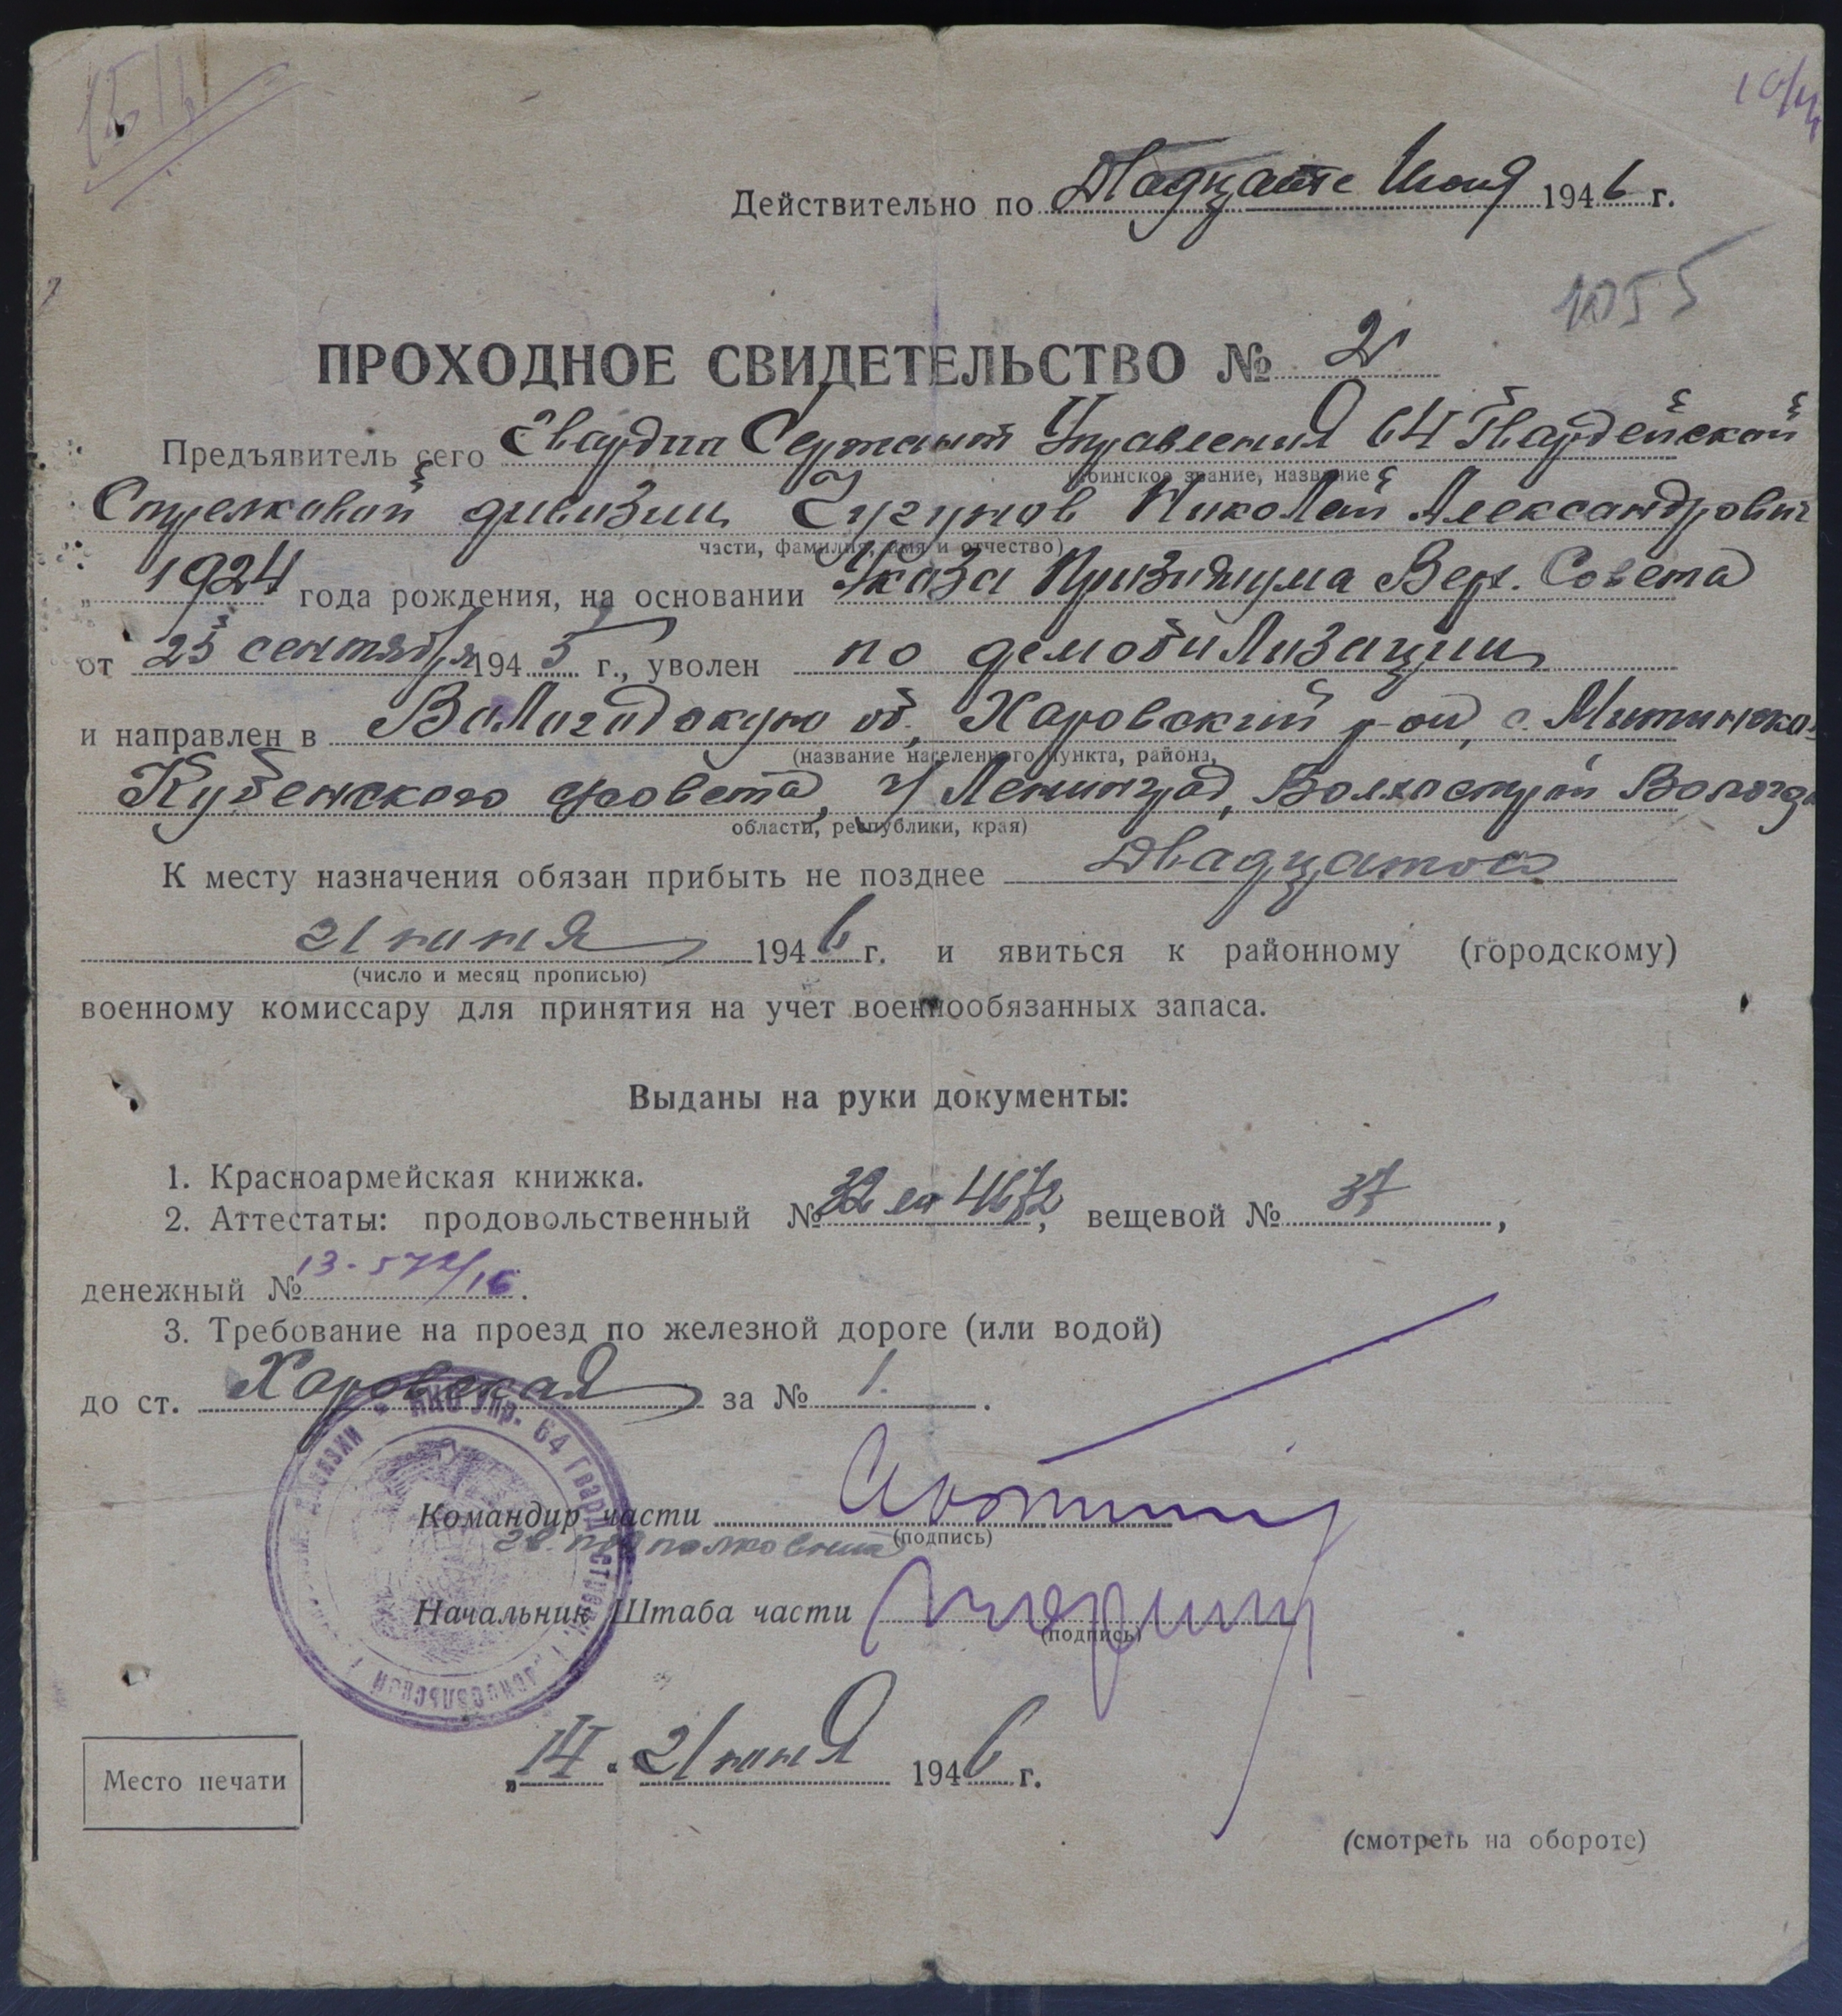 Действительно по Двадцате Июня 1946 г.
1055
ПРОХОДНОЕ СВИДЕТЕЛЬСТВО № 2
Предъявитель сего Гвардии Сержант Управления 64 Гвардейской
(воинское звание, название
Стрелковой дивизии Чугунов Николай Александрович
части, фамилия, имя и отчество)
„ 1924 года рождения, на основании Указа Призидиума Верх. Совета
от 25 сентября 1945 г., уволен по демобилизации
и направлен в Вологодскую об, Харовский р-он, с.
(название населенного пункта, района,
Кубенского с/совета, ч/ Ленинград, Волхострой Волог
области, республики, края)
К месту назначения обязан прибыть не позднее Двадцатого
21 июня 1946 г. и явиться к районному (городскому)
(число и месяц прописью)
военному комиссару для принятия на учет военнообязанных запаса.
Выданы на руки документы:
1. Красноармейская книжка.
2. Аттестаты: продовольственный № 32 4672, вещевой № 37,
денежный № 13-572/16.
3. Требование на проезд по железной дороге (или водой)
до ст. Харовская за № 1.
НКО Упр. 64 Гвард. стрелк.
дивизии
Командир части
(подпись)
гв. подполковник
Начальник Штаба части
(подпись)
„ “ июня 1946 г.
Место печати
(смотреть на обороте)